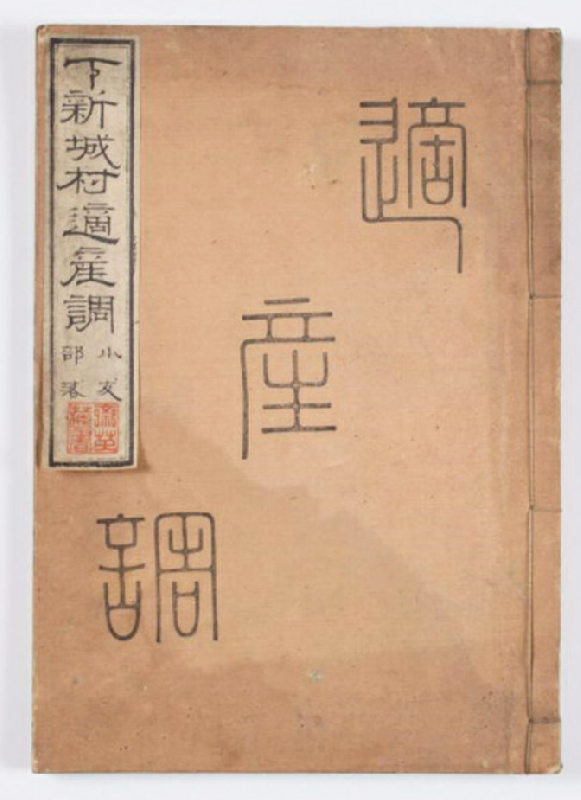 適
産
調
下新城村適産調
小友
部落